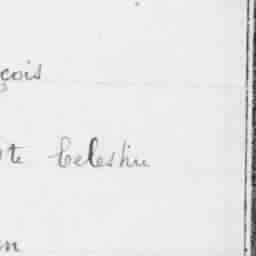 çois
te Celestin